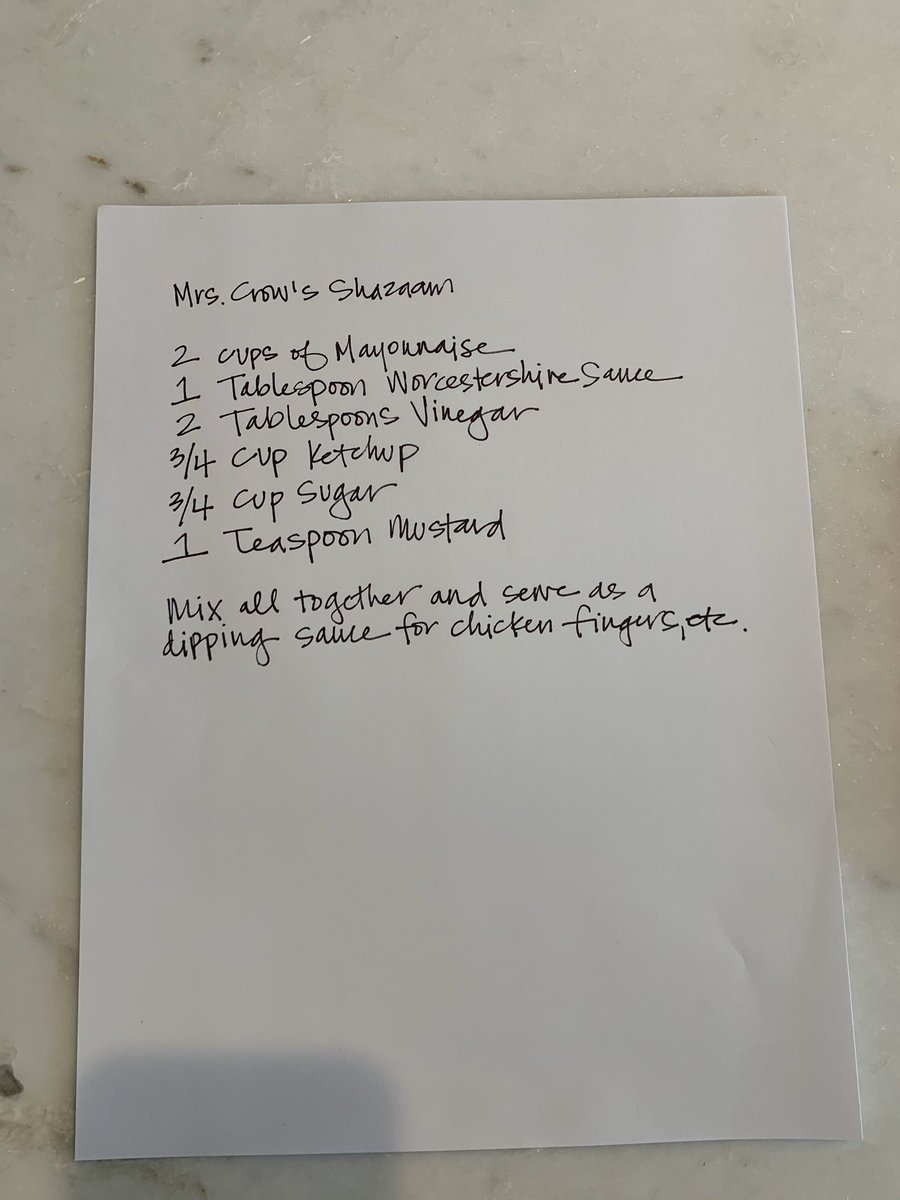 Mrs. Crow's Shazaam
2 cups of Mayonnaise
1 Tablespoon Worcestershire Sauce
2 Tablespoons Vinegar
3/4 cup Ketchup
3/4 cup Sugar
1 Teaspoon Mustard
Mix all together and serve as a
dipping sauce for chicken fingers, etc.